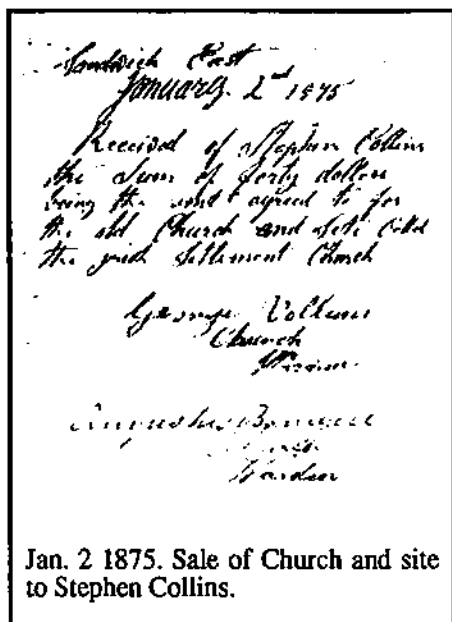 Sandwich East
January. 2nd 1875
Received of Stephen Collins
the Sum of forty dollars
being the amt agreed to for
the old Church and site Called
the Irish Settlement Church
George Collins
Church
Warden
Augustus
Warden
Jan. 2 1875. Sale of Church and site
to Stephen Collins.